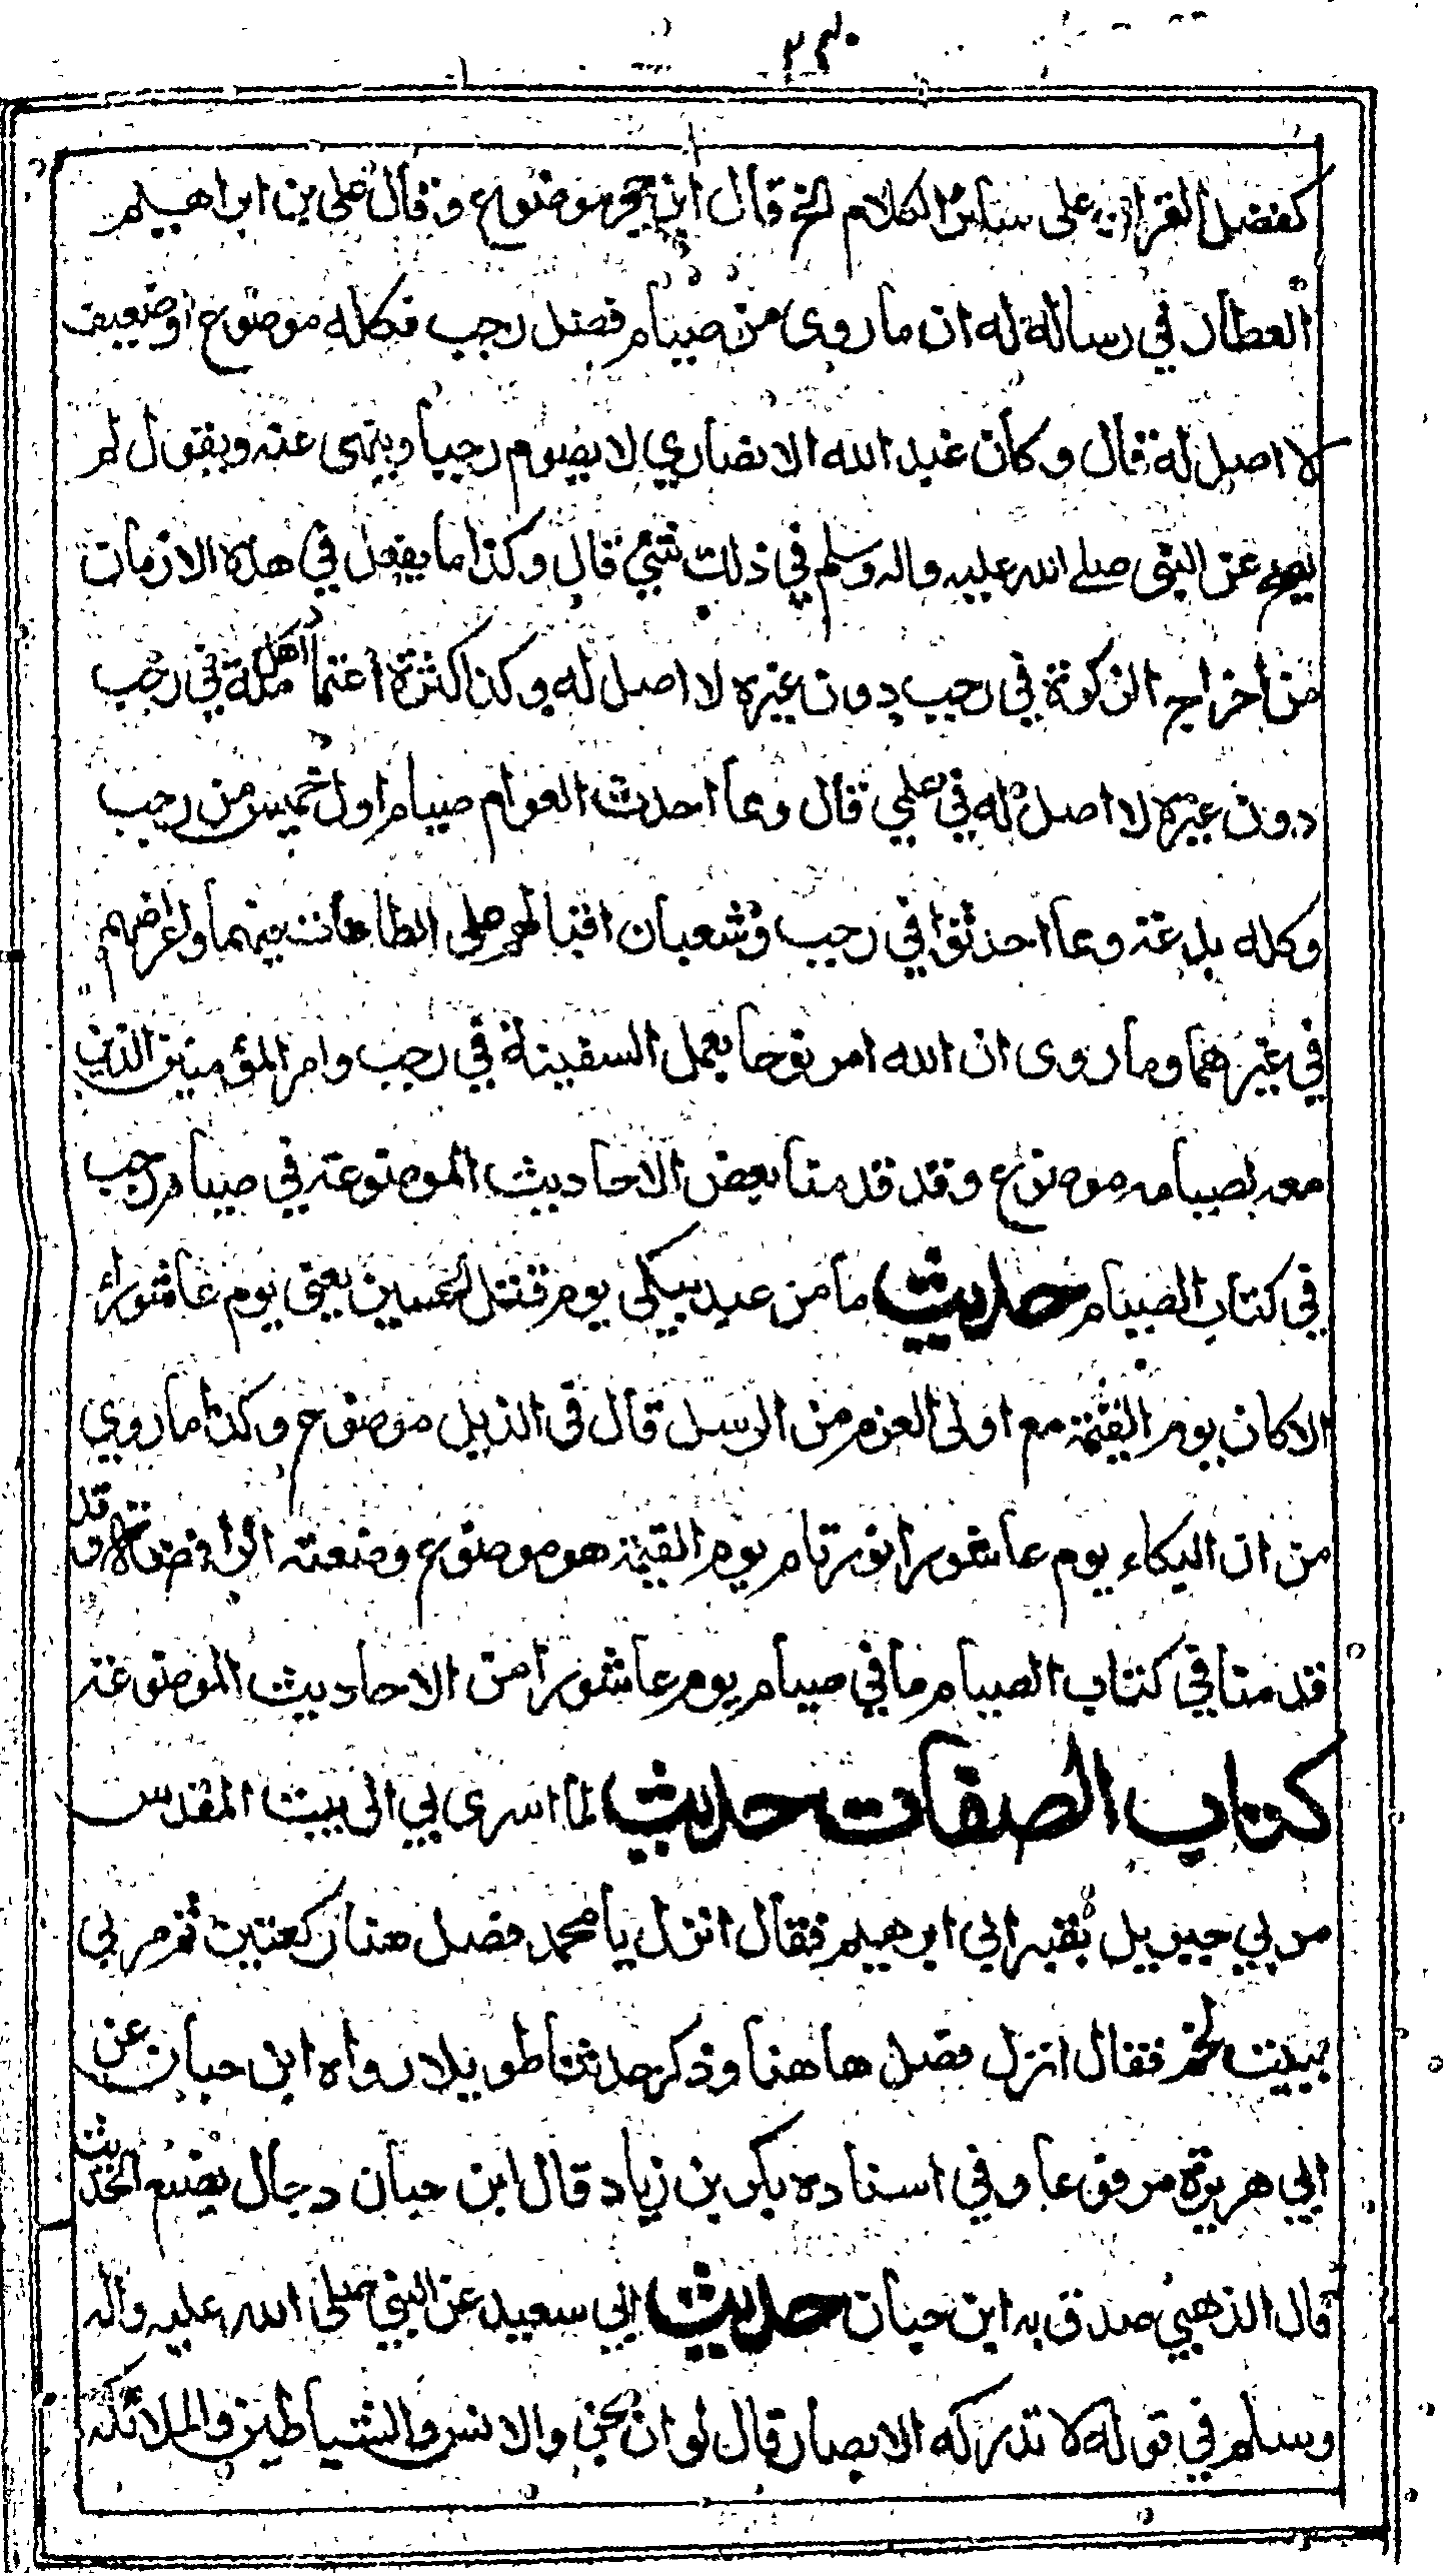 ٢٣٠
كفضل القران على سائر الكلام الخ قال ابن حجر موضوع وقال علي بن ابراهيم
العطار في رسالة له ان ما روى من صيام فضل رجب فكله موضوع او ضعيف
لا اصل له قال وكان عبد الله الانصاري لا يصوم رجبا وينهى عنه ويقول لم
يصح عن النبي صلے الله عليه واله وسلم في ذلك شئ قال وكذا ما يفعل في هذه الازمان
من اخراج الزكوة في رجب دون غيره لا اصل له وكذا كثرة اعتمار اهل مكة في رجب
دون غيره لا اصل له في علمي قال ومما احدث العوام صيام اول خميس من رجب
وكله بدعة ومما احدثوا في رجب وشعبان اقبالهم على الطاعات فيهما واعراضهم
في غيرهما وما روى ان الله امر نوحا بعمل السفينة في رجب وامر المؤمنين الذين
معه بصيامه موضوع وقد قدمنا بعض الاحاديث الموضوعة في صيام رجب
في كتاب الصيام حديث ما من عبد يبكى يوم قتل الحسين يعني يوم عاشوراء
الا كان يوم القيمة مع اولى العزم من الرسل قال في الذيل موضوع وكذا ما روي
من ان البكاء يوم عاشورا نور تام يوم القيمة هو موضوع وضعته الرافضة وقد
قدمنا في كتاب الصيام ما في صيام يوم عاشورا من الاحاديث الموضوعة
كتاب الصفات حديث لما اسرى بي الى بيت المقدس
مر بي جبريل بقبر ابي ابرهيم فقال انزل يا محمد فصل هنا ركعتين ثم مر بي
ببيت لحم فقال انزل فصل هاهنا وذكر حديثا طويلا رواه ابن حبان عن
ابي هريرة مرفوعا وفي اسناده بكر بن زياد قال ابن حبان دجال يضع الحديث
قال الذهبي صدق به ابن حبان حديث ابي سعيد عن النبي صلى الله عليه واله
وسلم في قوله لا تدركه الابصار قال لو ان الجن والانس والشياطين والملائكة